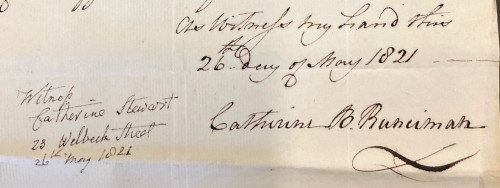 As Witness my hand this
26th day of May 1821
Catherine B. Runciman
Witness
Catherine Stewart
23 Welbeck Street
26th May 1821